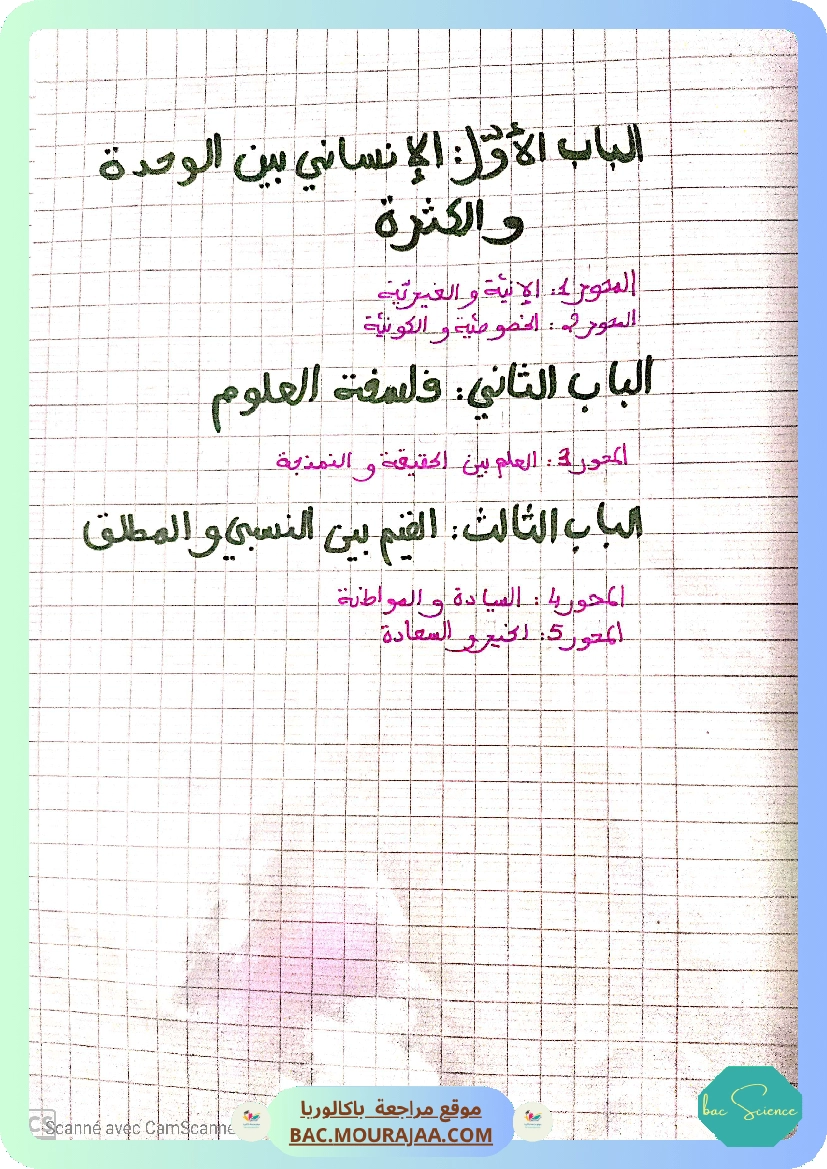 الباب الأوّل: الإنساني بين الوحدة
والكثرة
المحور 1: الإنيّة والغيريّة
المحور 2: الخصوصيّة والكونيّة
الباب الثاني: فلسفة العلوم
المحور 3: العلم بين الحقيقة والنمذجة
الباب الثالث: القيم بين النسبي والمطلق
المحور 4: السيادة والمواطنة
المحور 5: الخير والسعادة
CS Scanné avec CamScanne
موقع مراجعة باكالوريا
BAC.MOURAJAA.COM
bac Science